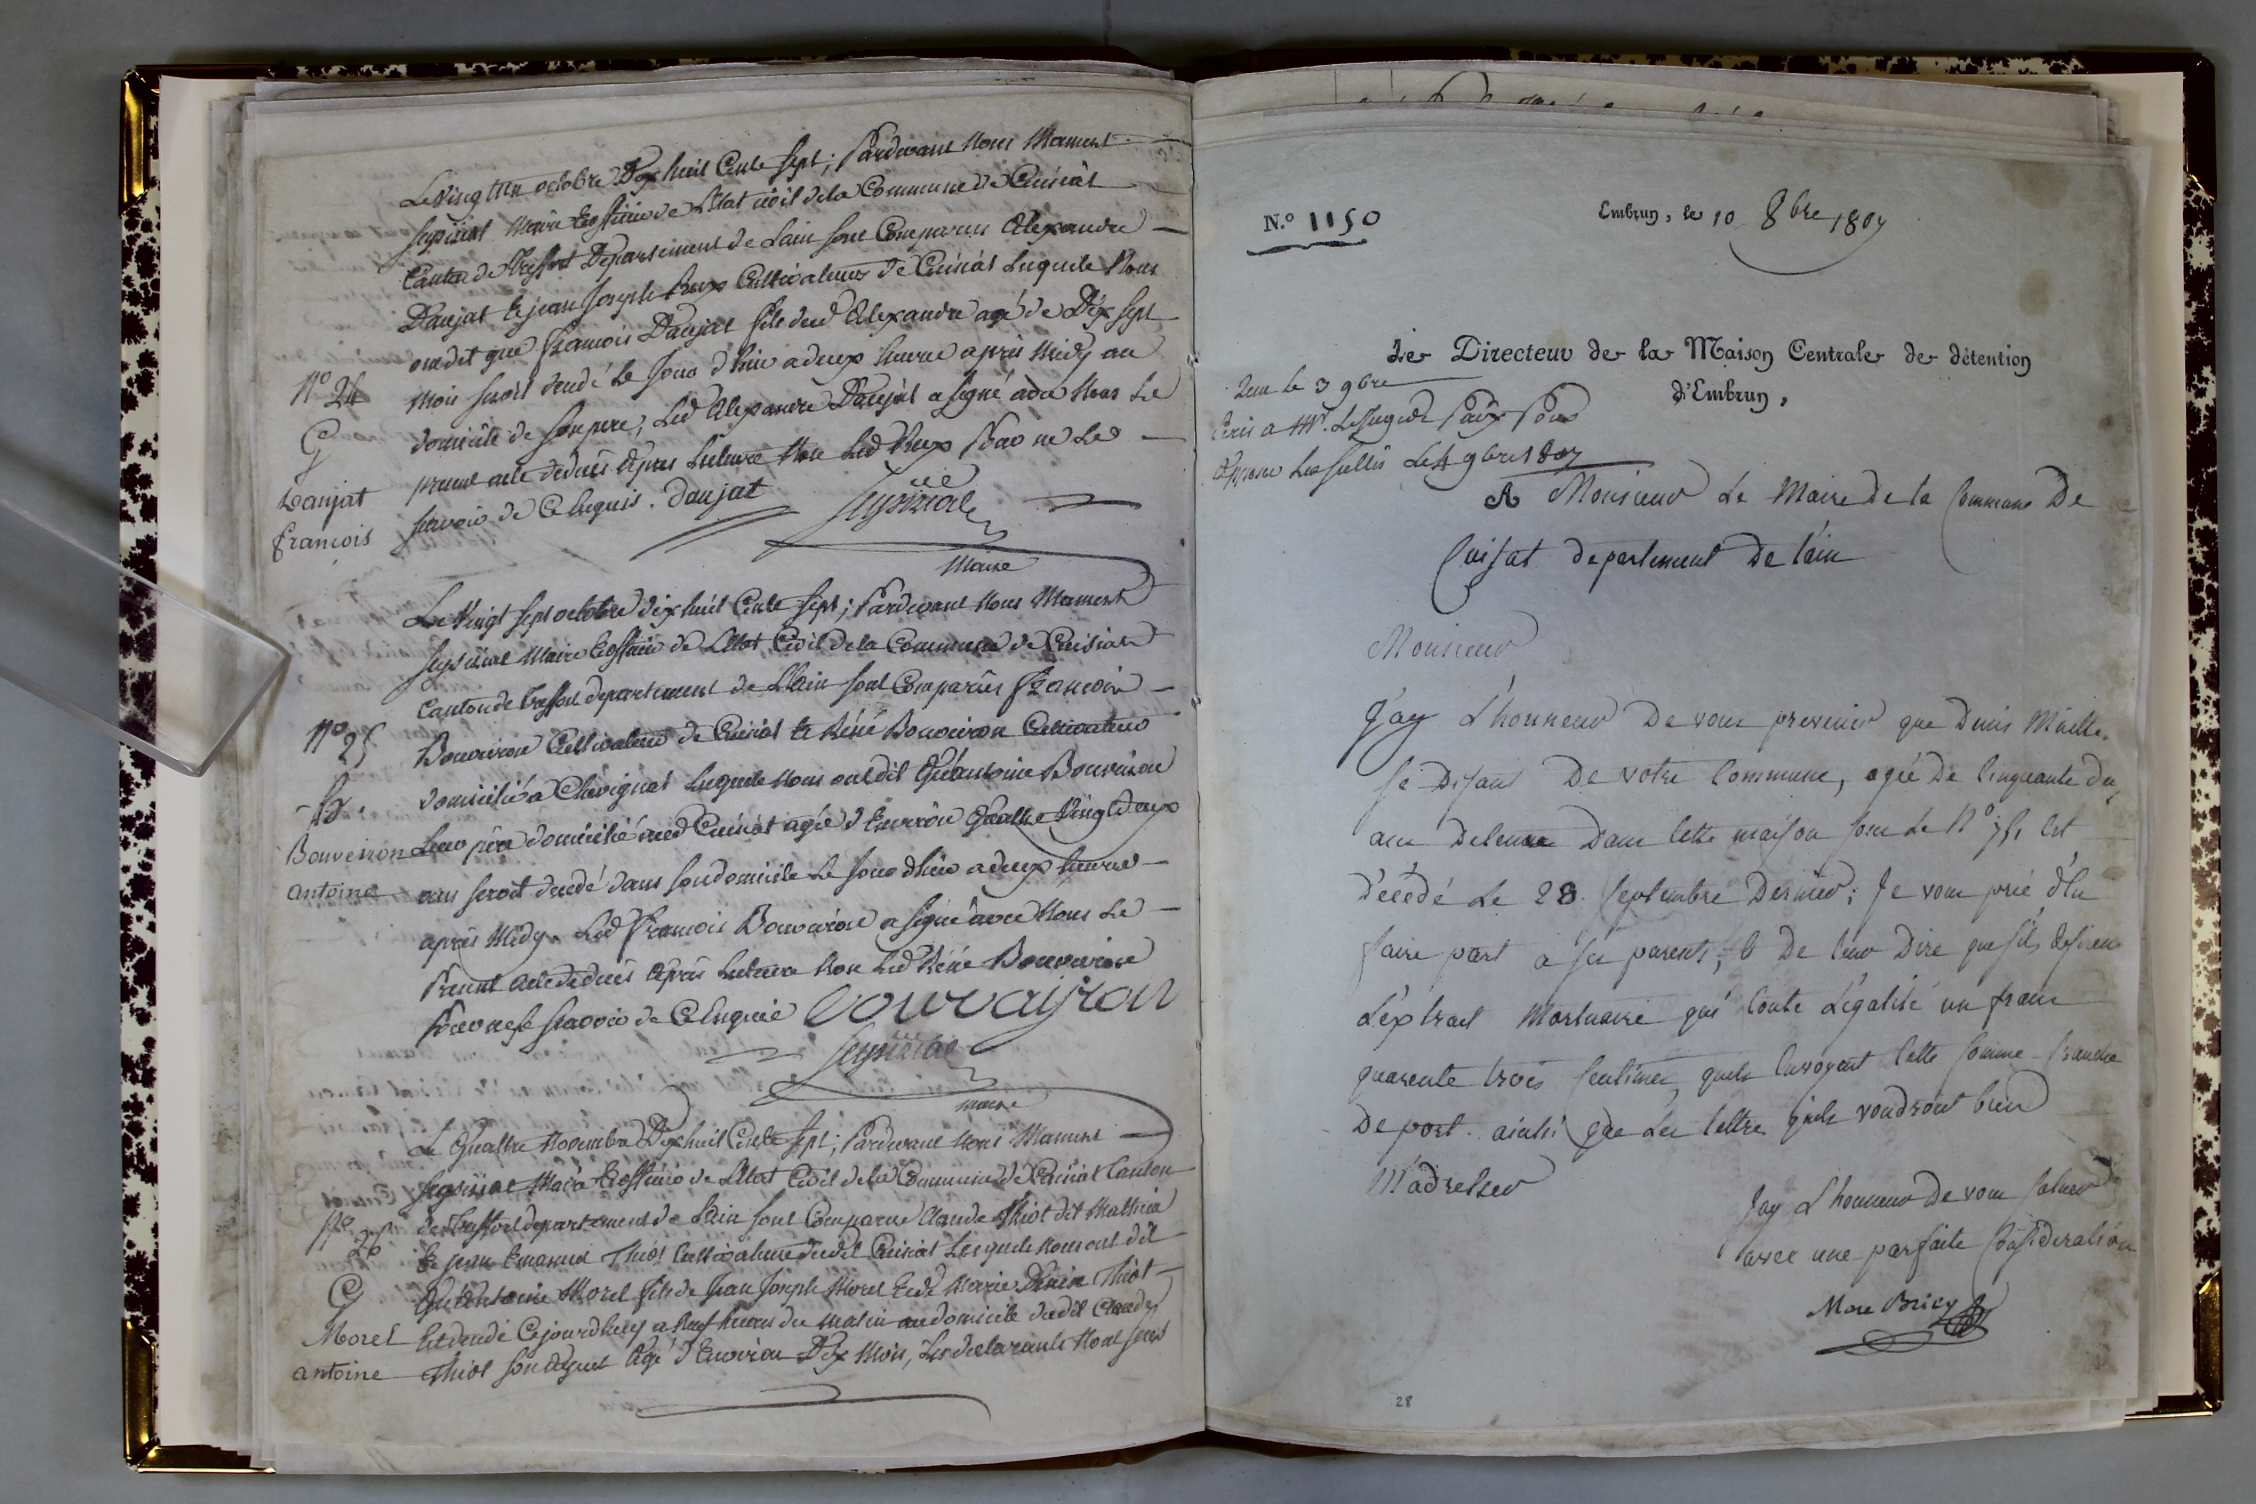 Le Vingt un octobre Dix huit Cents Sept; Pardevant Nous Mamert
Seyssial Maire Et officier de L'Etat civil dela Commune de Cuisiat
Canton de Treffort Departement de Lain sont Comparus Alexandre
Daujat Et jean Joseph Rux Cultivateurs de Cuisiat Lesquels Nous
ont dit que Francois Daujat fils dud Alexandre agé de Dix sept
Mois seroit decedé Le Jour d'hier a deux heures après Midy au
domicile de son pere, Led Alexandre Daujat a signé avec Nous Le
present acte de decès après Lecture Non Led Rux Pour ne Le
scavoir de Ce Enquis. Daujat
Seyssial
Maire
N.o 24
Daujat
francois
Le Vingt sept octobre dix huit Cents Sept; Pardevant Nous Mamert
Seyssial Maire Et officier de L'Etat Civil de la Commune de Cuisiat
Canton de Treffort departement de L'Ain sont Comparus Francois
Bouvairon Cultivateur de Cuisiat Et Réné Bouvairon Cultivateur
domicilié a Chevignat Lesquels Nous ont dit Qu'antoine Bouvairon
Leur père domicilié aud Cuisiat agé d'Environ Quattre Vingt deux
ans seroit decedé dans son domicile Le Jour d'hier a deux heures
après Midy. Led Francois Bouvairon a signé avec Nous Le
Present acte de decès après Lecture Non Led Réné Bouvairon
Pour ne Le scavoir de Ce Enquis Bouvairon
Seyssial
maire
N.o 25
Bouveiron
antoine
Le Quattre Novembre Dix huit Cents Sept; Pardevant Nous Mamert
Seyssial Maire Et officier de L'Etat Civil dela Commune de Cuisiat Canton
de Treffort departement de Lain sont Comparus Claude Thiot dit Mathieu
Et jean Emanuel Thiot Cultivateurs dudit Cuisiat Lesquels Nous ont dit
Qu'Antoine Morel fils de Jean Joseph Morel Et de Marie Thiot
Est decedé Cejourdhuy a Neuf heures du matin au domicile dudit Claude
Thiot son agé d'Environ Dix Mois, Les declarants Nont signé
N.o 26
Morel
antoine
N.o 1150
Embrun, le 10 8bre 1807
Le Directeur de la Maison Centrale de détention
d'Embrun,
Reçu le 3 9bre
Ecris a Mr. Le Juge de Paix Pour
apposer Les scellés Le 4 9bre 1807
A Monsieur Le Maire de la Commune De
Cuisat departement De l'ain
Monsieur
J'ay L'honneur De vous prevenir que Denis Maille.
se Disant De votre Commune, agée De Cinquante
ans Detenu Dans Cette maison sous Le N.o Est
Décédé Le 28. Septembre Dernier; Je vous prie d'En
faire part a ses parents, Et De leur Dire que s'ils desirent
L'extrait Mortuaire qui Coute Légalisé un franc
quarente trois Centimes, quils Envoyent Cette somme franche
De port. ainsi que Les lettres quils voudront bien
M'adresser
J'ay L'honneur De vous saluer
avec une parfaite Consideration
Marc Bricy
28